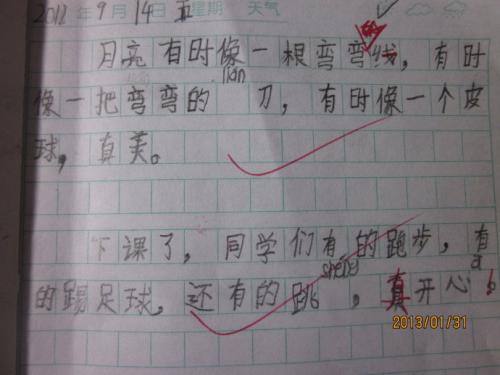 2012年9月14日五星期 天气
月亮有时像一根弯弯线，有时
像一把弯弯的lian刀，有时像一个皮
球，真美。
下课了，同学们有的跑步，有
的踢足球，还有的跳sheng，真开心a
2013/01/31